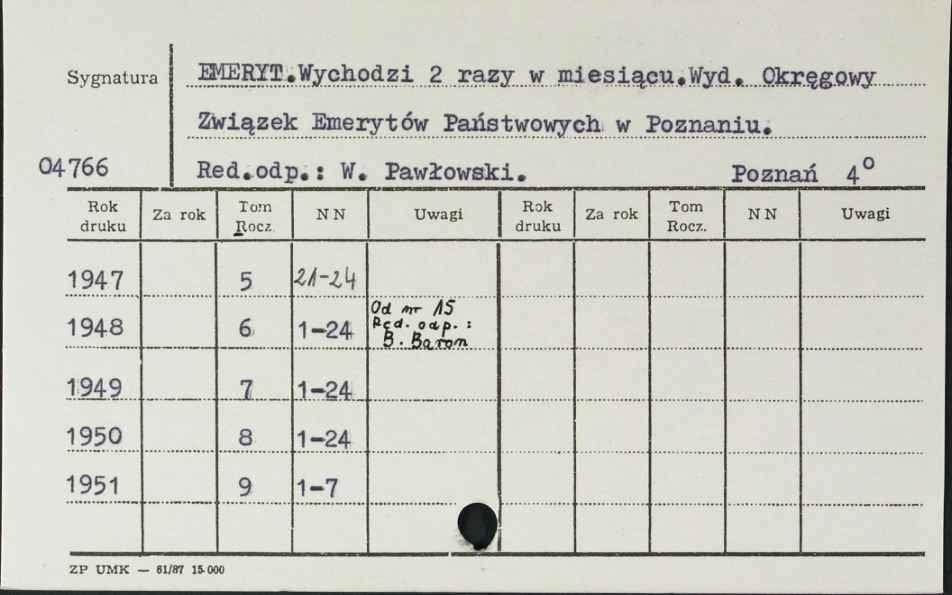 Sygnatura EMERYT.Wychodzi 2 razy w miesiącu.Wyd. Okręgowy
Związek Emerytów Państwowych w Poznaniu.
04766 Red.odp.: W. Pawłowski. Poznań 4°
Rok druku Za rok Tom Rocz. NN Uwagi Rok druku Za rok Tom Rocz. NN Uwagi
1947 5 21-24
1948 6 1-24 Od nr 15
Red. odp.:
B. Baron
1949 7 1-24
1950 8 1-24
1951 9 1-7
ZP UMK — 61/87 15 000